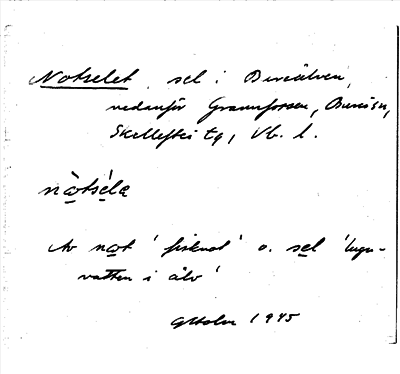 Notselet, sel i Bureälven,
nedanför Grannforsen, Bureå sn,
Skellefteå tg, Vb. l.
nò̱tsé̱lą
Av no̱t 'fisknot' o. se̱l 'lugn-
vatten i älv'
1945